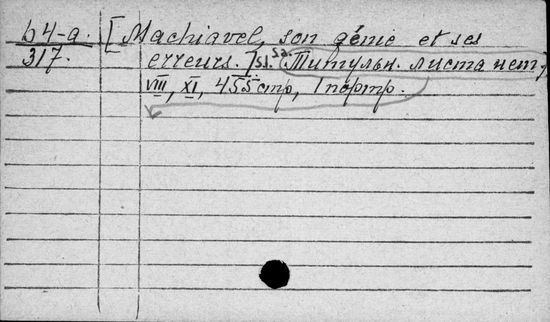 64-а. [Machiavel, son génie et ses
317. erreurs.] s.l. s.a. (Титульн. листа нет)
VIII, XI, 455 стр, 1 портр.